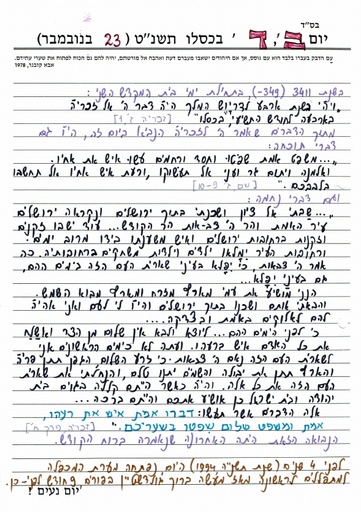 בס"ד
יום ב', ד' בכסלו תשנ"ט (23 בנובמבר)
עם הדבק בעברו בלבד הוא עם גוסס, אך אם היהודים ישאבו מעברם דעת ואהבה אל מורשתם, יהיה להם גם הכוח לפתוח את שערי עתידם.
אבא קובנר, 1978
בשנת 3411 (349-), בתחילת ימי בית המקדש השני:
"ויהי בשנת ארבע לדריוש המלך היה דבר ה' אל זכריה
בארבעה לחודש התשיעי בכסלו" [זכריה ז', 1]
מתוך הדברים שאמר ה' לזכריה הנביא ביום זה, היו גם
דברי תוכחה:
"...משפט אמת שפטו וחסד ורחמים עשו איש את אחיו.
ואלמנה ויתום גר ועני אל תעשוקו, ורעת איש אחיו אל תחשבו
בלבבכם." [שם, 9-10]
וגם דברי נחמה:
"...שבתי אל ציון ושכנתי בתוך ירושלים ונקראה ירושלים
עיר האמת והר ה' צב-אות הר הקודש... עוד ישבו זקנים
וזקנות ברחובות ירושלים ואיש משענתו בידו מרוב ימים.
ורחובות העיר ימלאו ילדים וילדות משחקים ברחובותיה. כה
אמר ה' צבאות, כי יפלא בעיני שארית העם הזה בימים ההם,
גם בעיני יפלא...
הנני מושיע את עמי מארץ מזרח ומארץ מבוא השמש.
והבאתי אותם ושכנו בתוך ירושלים והיו לי לעם ואני אהיה
להם לאלוקים באמת ובצדקה...
כי לפני הימים ההם... ליוצא ולבא אין שלום מן הצר ואשלח
את כל האדם איש ברעהו. ועתה לא כימים הראשונים אני
לשארית העם הזה נאם ה' צבאות. כי זרע השלום, הגפן תתן פריה
והארץ תתן את יבולה והשמים יתנו טלם, והנחלתי את שארית
העם הזה את כל אלה. והיה כאשר הייתם קללה בגוים בית
יהודה ובית ישראל כן אושיע אתכם והייתם ברכה...
אלה הדברים אשר תעשו: דברו אמת איש את רעהו,
אמת ומשפט שלום שפטו בשעריכם." [זכריה, פרק ח']
הנבואה הזאת היתה האחרונה שנאמרה ברוח הקודש.
לפני 4 שנים (שנת תשנ"ה 1994) היום נפתחה מערת המכפלה
למתפללים לראשונה מאז מעשה ברוך גולדשטיין בפורים 9 חודש לפני-כן.
יום נעים !